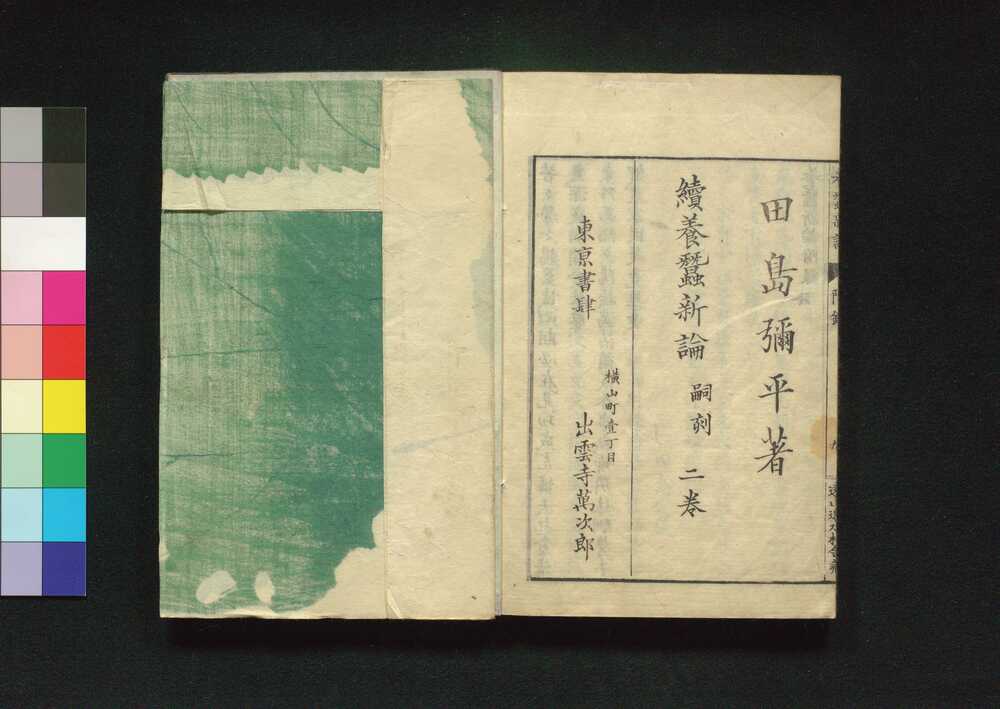 田島彌平著
續養蠶新論 嗣刻 二巻
橫山町壹丁目
東京書肆 出雲寺萬次郎
附録